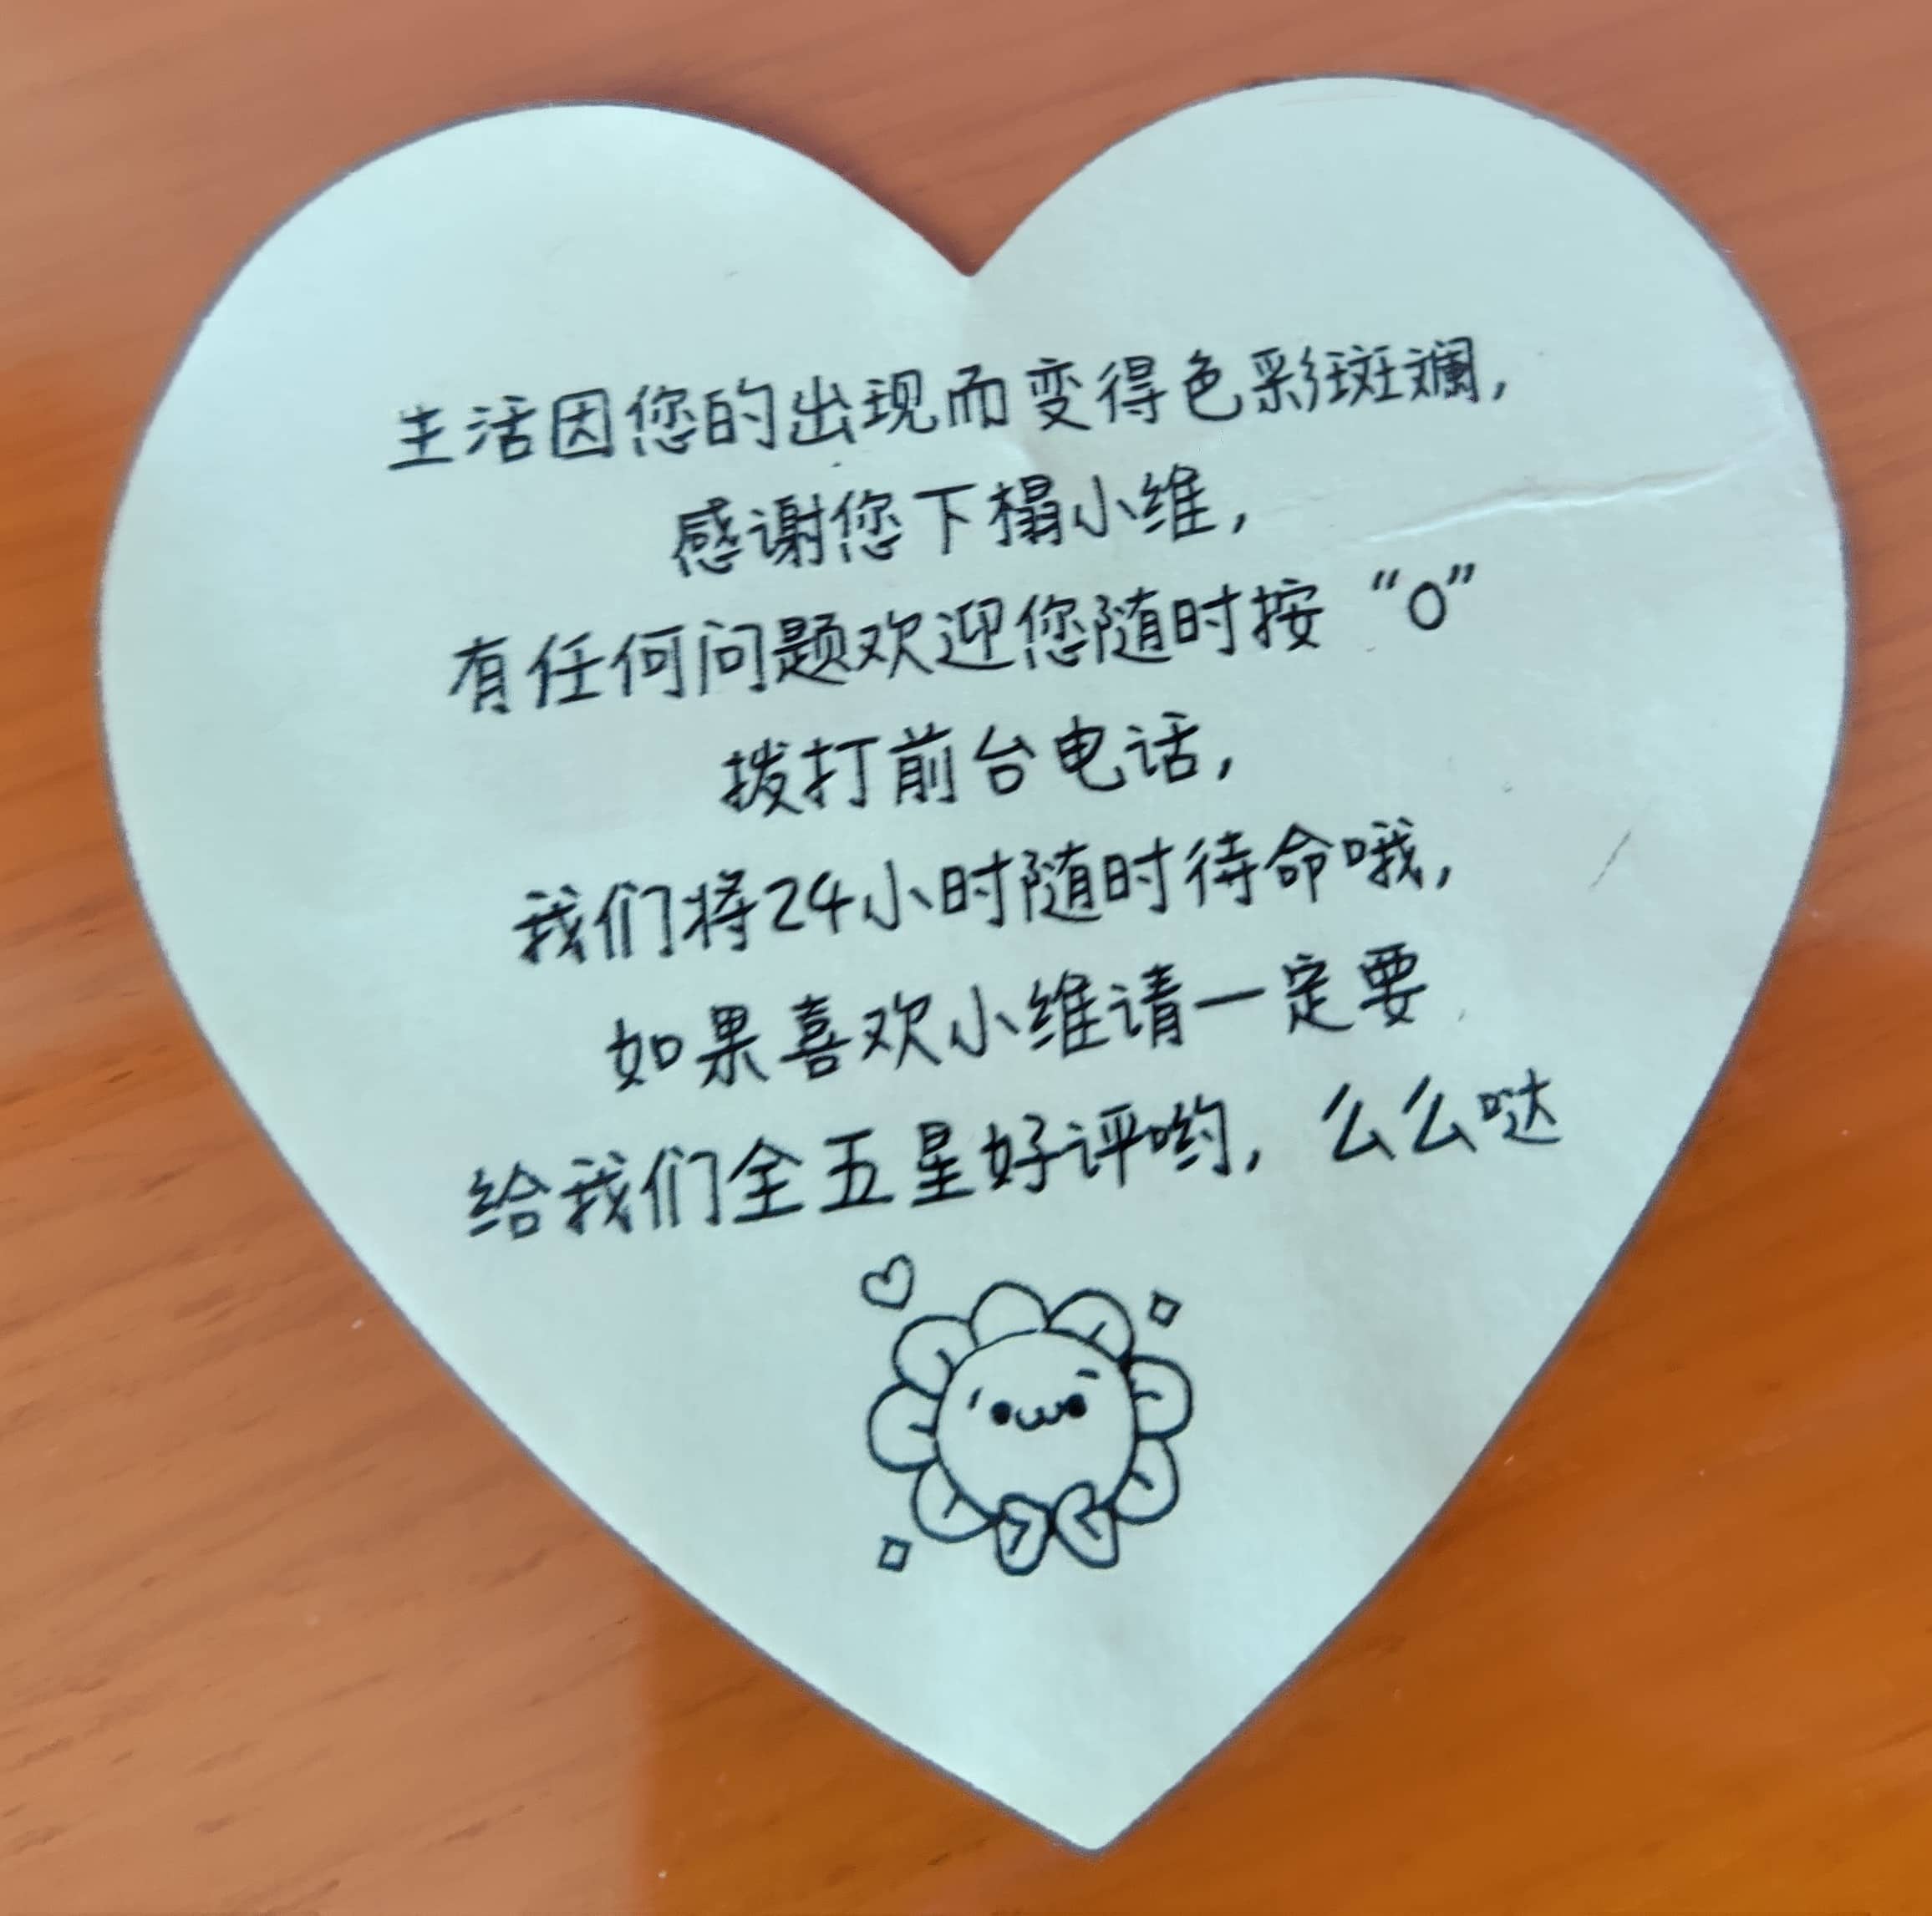 生活因您的出现而变得色彩斑斓,
感谢您下榻小维,
有任何问题欢迎您随时按“0”
拨打前台电话,
我们将24小时随时待命哦,
如果喜欢小维请一定要
给我们全五星好评哟, 么么哒